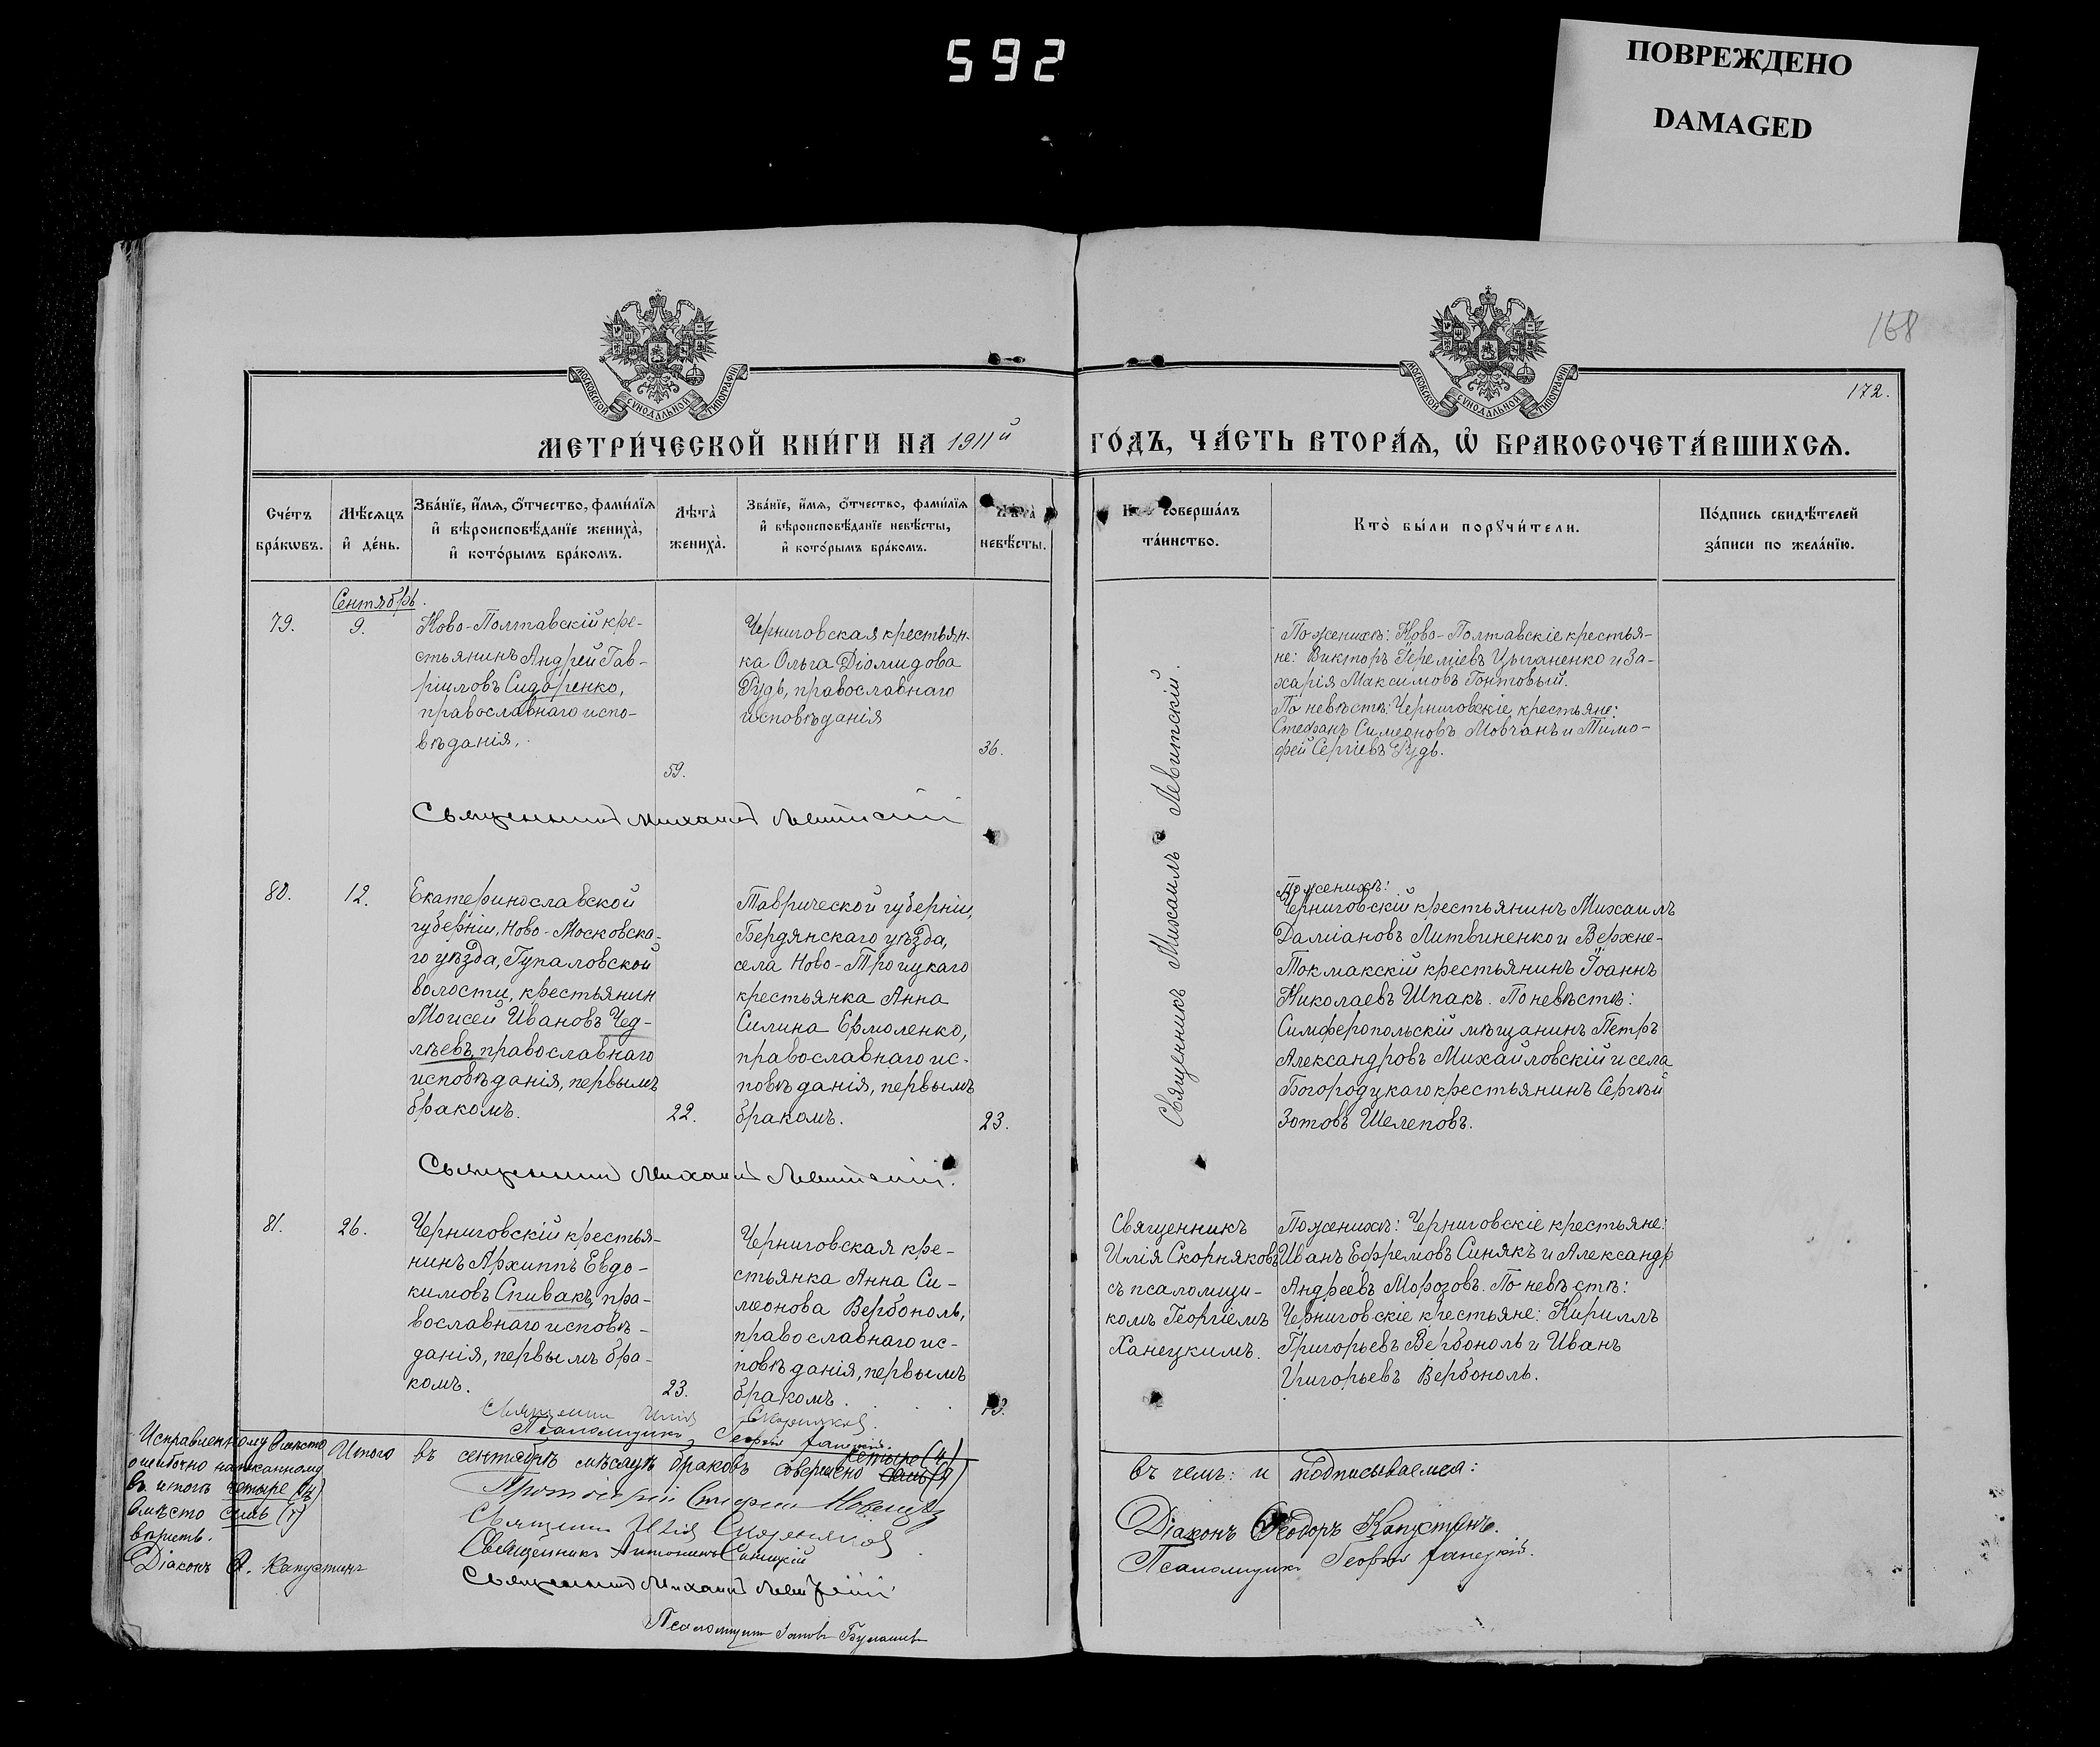 592
ПОВРЕЖДЕНО
DAMAGED
168
172.
МОСКОВСКОЙ СѴНОДАЛЬНОЙ ТИПОГРАФІИ
МОСКОВСКОЙ СѴНОДАЛЬНОЙ ТИПОГРАФІИ
МЕТРИ́ЧЕСКОЙ КНИ́ГИ НА 1911й ГО́ДЪ, ЧА́СТЬ ВТОРА́Ѧ, Ѽ БРАКОСОЧЕТА́ВШИХСѦ.
Сче́тъ
бра́кѡвъ.
Мѣ́сѧцъ
и҆ де́нь.
Зва́нїе, и҆́мѧ, ѻ҆́тчество, фами́лїѧ
и҆ вѣроисповѣ́данїе жениха̀,
и҆ кото́рымъ бра́комъ.
Лѣ́та̀
жениха̀.
Зва́нїе, и҆́мѧ, ѻ҆́тчество, фами́лїѧ
и҆ вѣроисповѣ́данїе невѣ́сты,
и҆ кото́рымъ бра́комъ.
Лѣ́та̀
невѣ́сты.
Кто̀ соверша́лъ
та́инство.
Кто̀ бы́ли порꙋчи́тели.
По́дпись свидѣ́телей
за́писи по жела́нїю.
Сентябрь.
79.
9.
Ново-Полтавскій кре-
стьянинъ Андрей Гав-
ріиловъ Сидоренко,
православнаго испо-
вѣданія.
59.
Черниговская крестьян-
ка Ольга Діомидова
Рудь, православнаго
исповѣданія
36.
По женихѣ: Ново-Полтавскіе крестья-
не: Викторъ Іереміевъ Цыганенко и За-
харія Максимовъ Гонтовый.
По невѣстѣ: Черниговскіе крестьяне:
Стефанъ Симеоновъ Мовчанъ и Тимо-
фей Сергіевъ Рудь.
Священникъ Михаилъ Левитскій
80.
12.
Екатеринославской
губерніи, Ново-Московска-
го уѣзда, Гупаловской
волости, крестьянин
Моисей Ивановъ Чед-
лѣевъ, православнаго
исповѣданія, первымъ
бракомъ.
22.
Таврической губерніи,
Бердянскаго уѣзда,
села Ново-Троицкаго
крестьянка Анна
Силина Ермоленко,
православнаго ис-
повѣданія, первымъ
бракомъ.
23.
Священникъ Михаилъ Левитскій.
По женихѣ:
Черниговскій крестьянинъ Михаилъ
Даміановъ Литвиненко и Верхне-
Токмакскій крестьянинъ Іоаннъ
Николаевъ Шпакъ. По невѣстѣ:
Симферопольскій мѣщанинъ Петръ
Александровъ Михайловскій и села
Богородицкаго крестьянинъ Сергѣй
Зотовъ Шелеповъ.
Священникъ Михаилъ Левитскій.
81.
26.
Черниговскій крестья-
нинъ Архиппъ Евдо-
кимовъ Спивакъ, пра-
вославнаго исповѣ-
данія, первымъ бра-
комъ.
23.
Черниговская кре-
стьянка Анна Си-
меонова Вербоноль,
православнаго ис-
повѣданія, первымъ
бракомъ.
Священникъ
Илія Скорняковъ
съ псаломщи-
комъ Георгіемъ
Ханецкимъ.
По женихѣ: Черниговскіе крестьяне:
Иванъ Ефремовъ Синякъ и Александр
Андреевъ Морозовъ. По невѣстѣ:
Черниговскіе крестьяне: Кириллъ
Григорьевъ Вербоноль и Иванъ
Григорьевъ Вербоноль.
Священникъ Илія Скорняковъ.
Псаломщикъ Георгій Ханецкій.
четыре (4)
Итого въ сентябрѣ мѣсяцѣ браковъ совершено семь (7)
въ чемъ: и подписываемся:
Исправленному вмѣсто
ошибочно написанному
въ итогѣ четыре (4)
вмѣсто семь (7)
вѣрить.
Діаконъ Ѳ. Капустинъ
Протоіерей Стефанъ
Священникъ Илія Скорняковъ
Священникъ Антонинъ Синицкій
Священникъ Михаилъ Левитскій
Псаломщикъ
Діаконъ Ѳеодоръ Капустинъ.
Псаломщикъ Георгій Ханецкій.